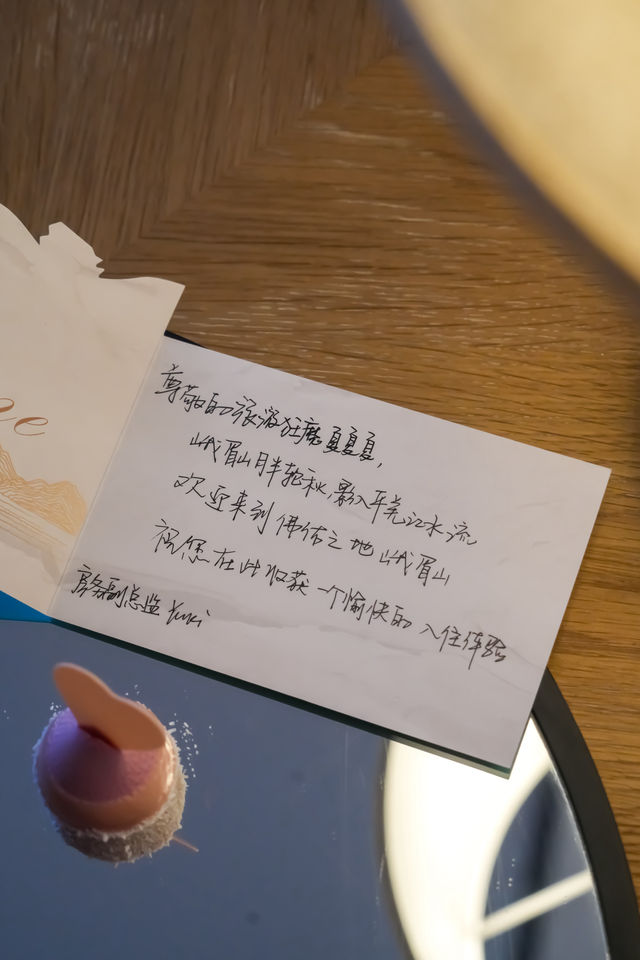 尊敬的旅游狂席夏夏夏,
峨眉山月半轮秋,影入平羌江水流
欢迎来到佛佑之地峨眉山
祝您在此收获一个愉快的入住体验
房务副总监 Yuki